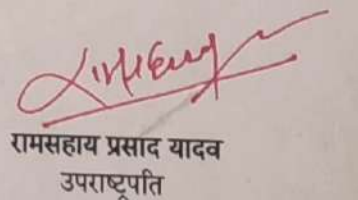 रामसहाय प्रसाद यादव
उपराष्ट्रपति